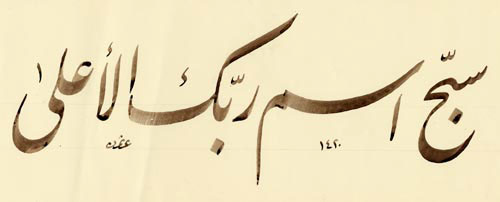 سبّح اسم ربّك الأعلى
١٤٢٠